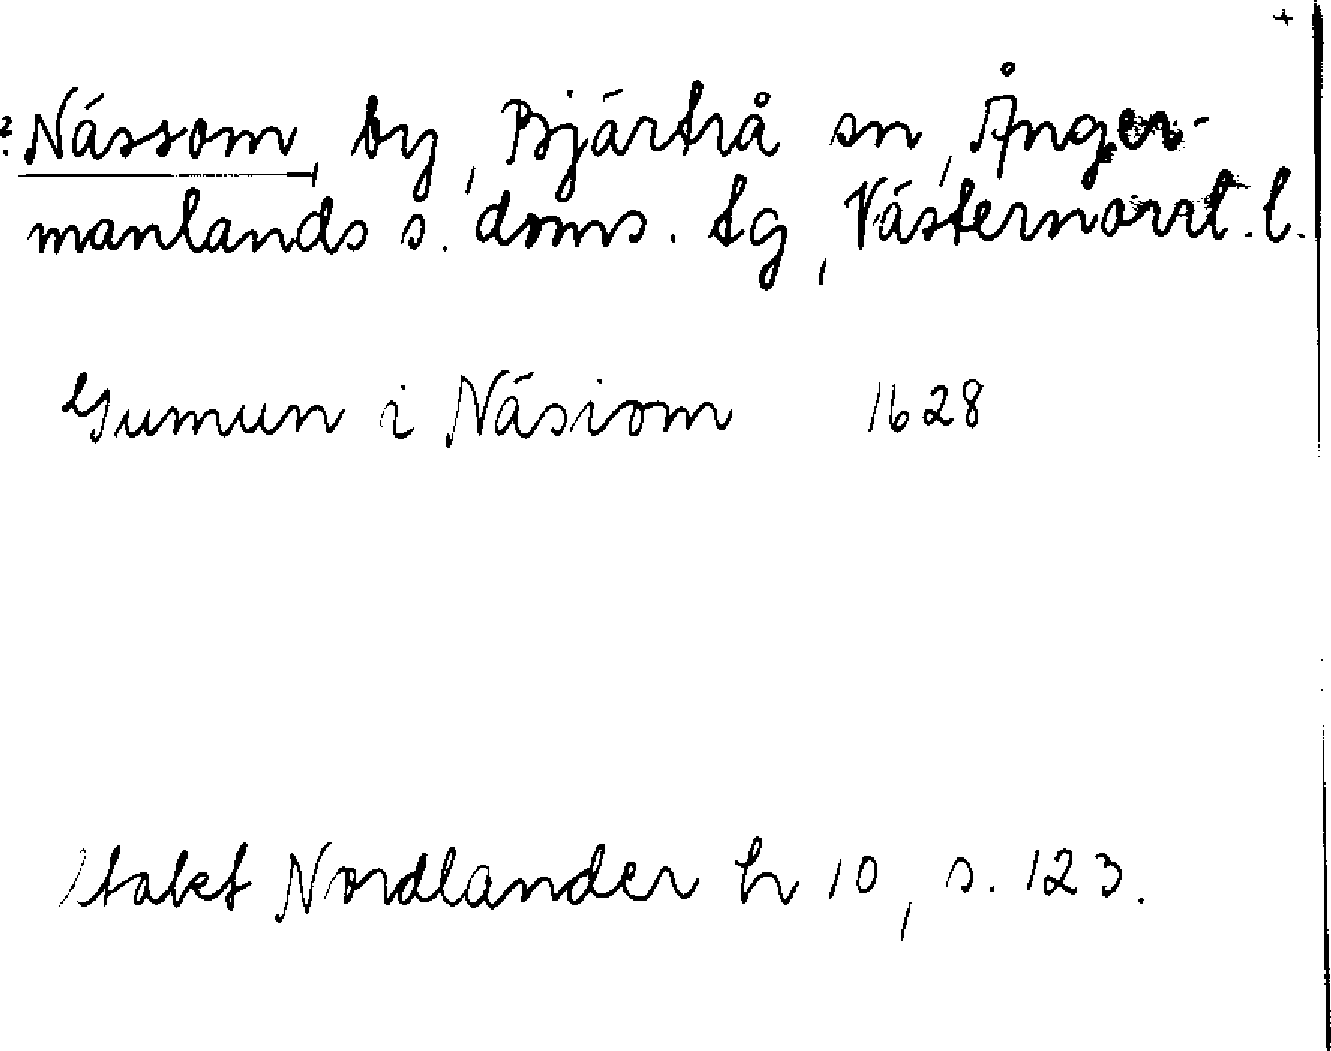 ? Nässom, by, Bjärtrå sn, Ånger-
manlands s. doms. tg, Västernorrl. l.
Gumun i Näsiom 1628
Utakt Nordlander h 10, s. 123.